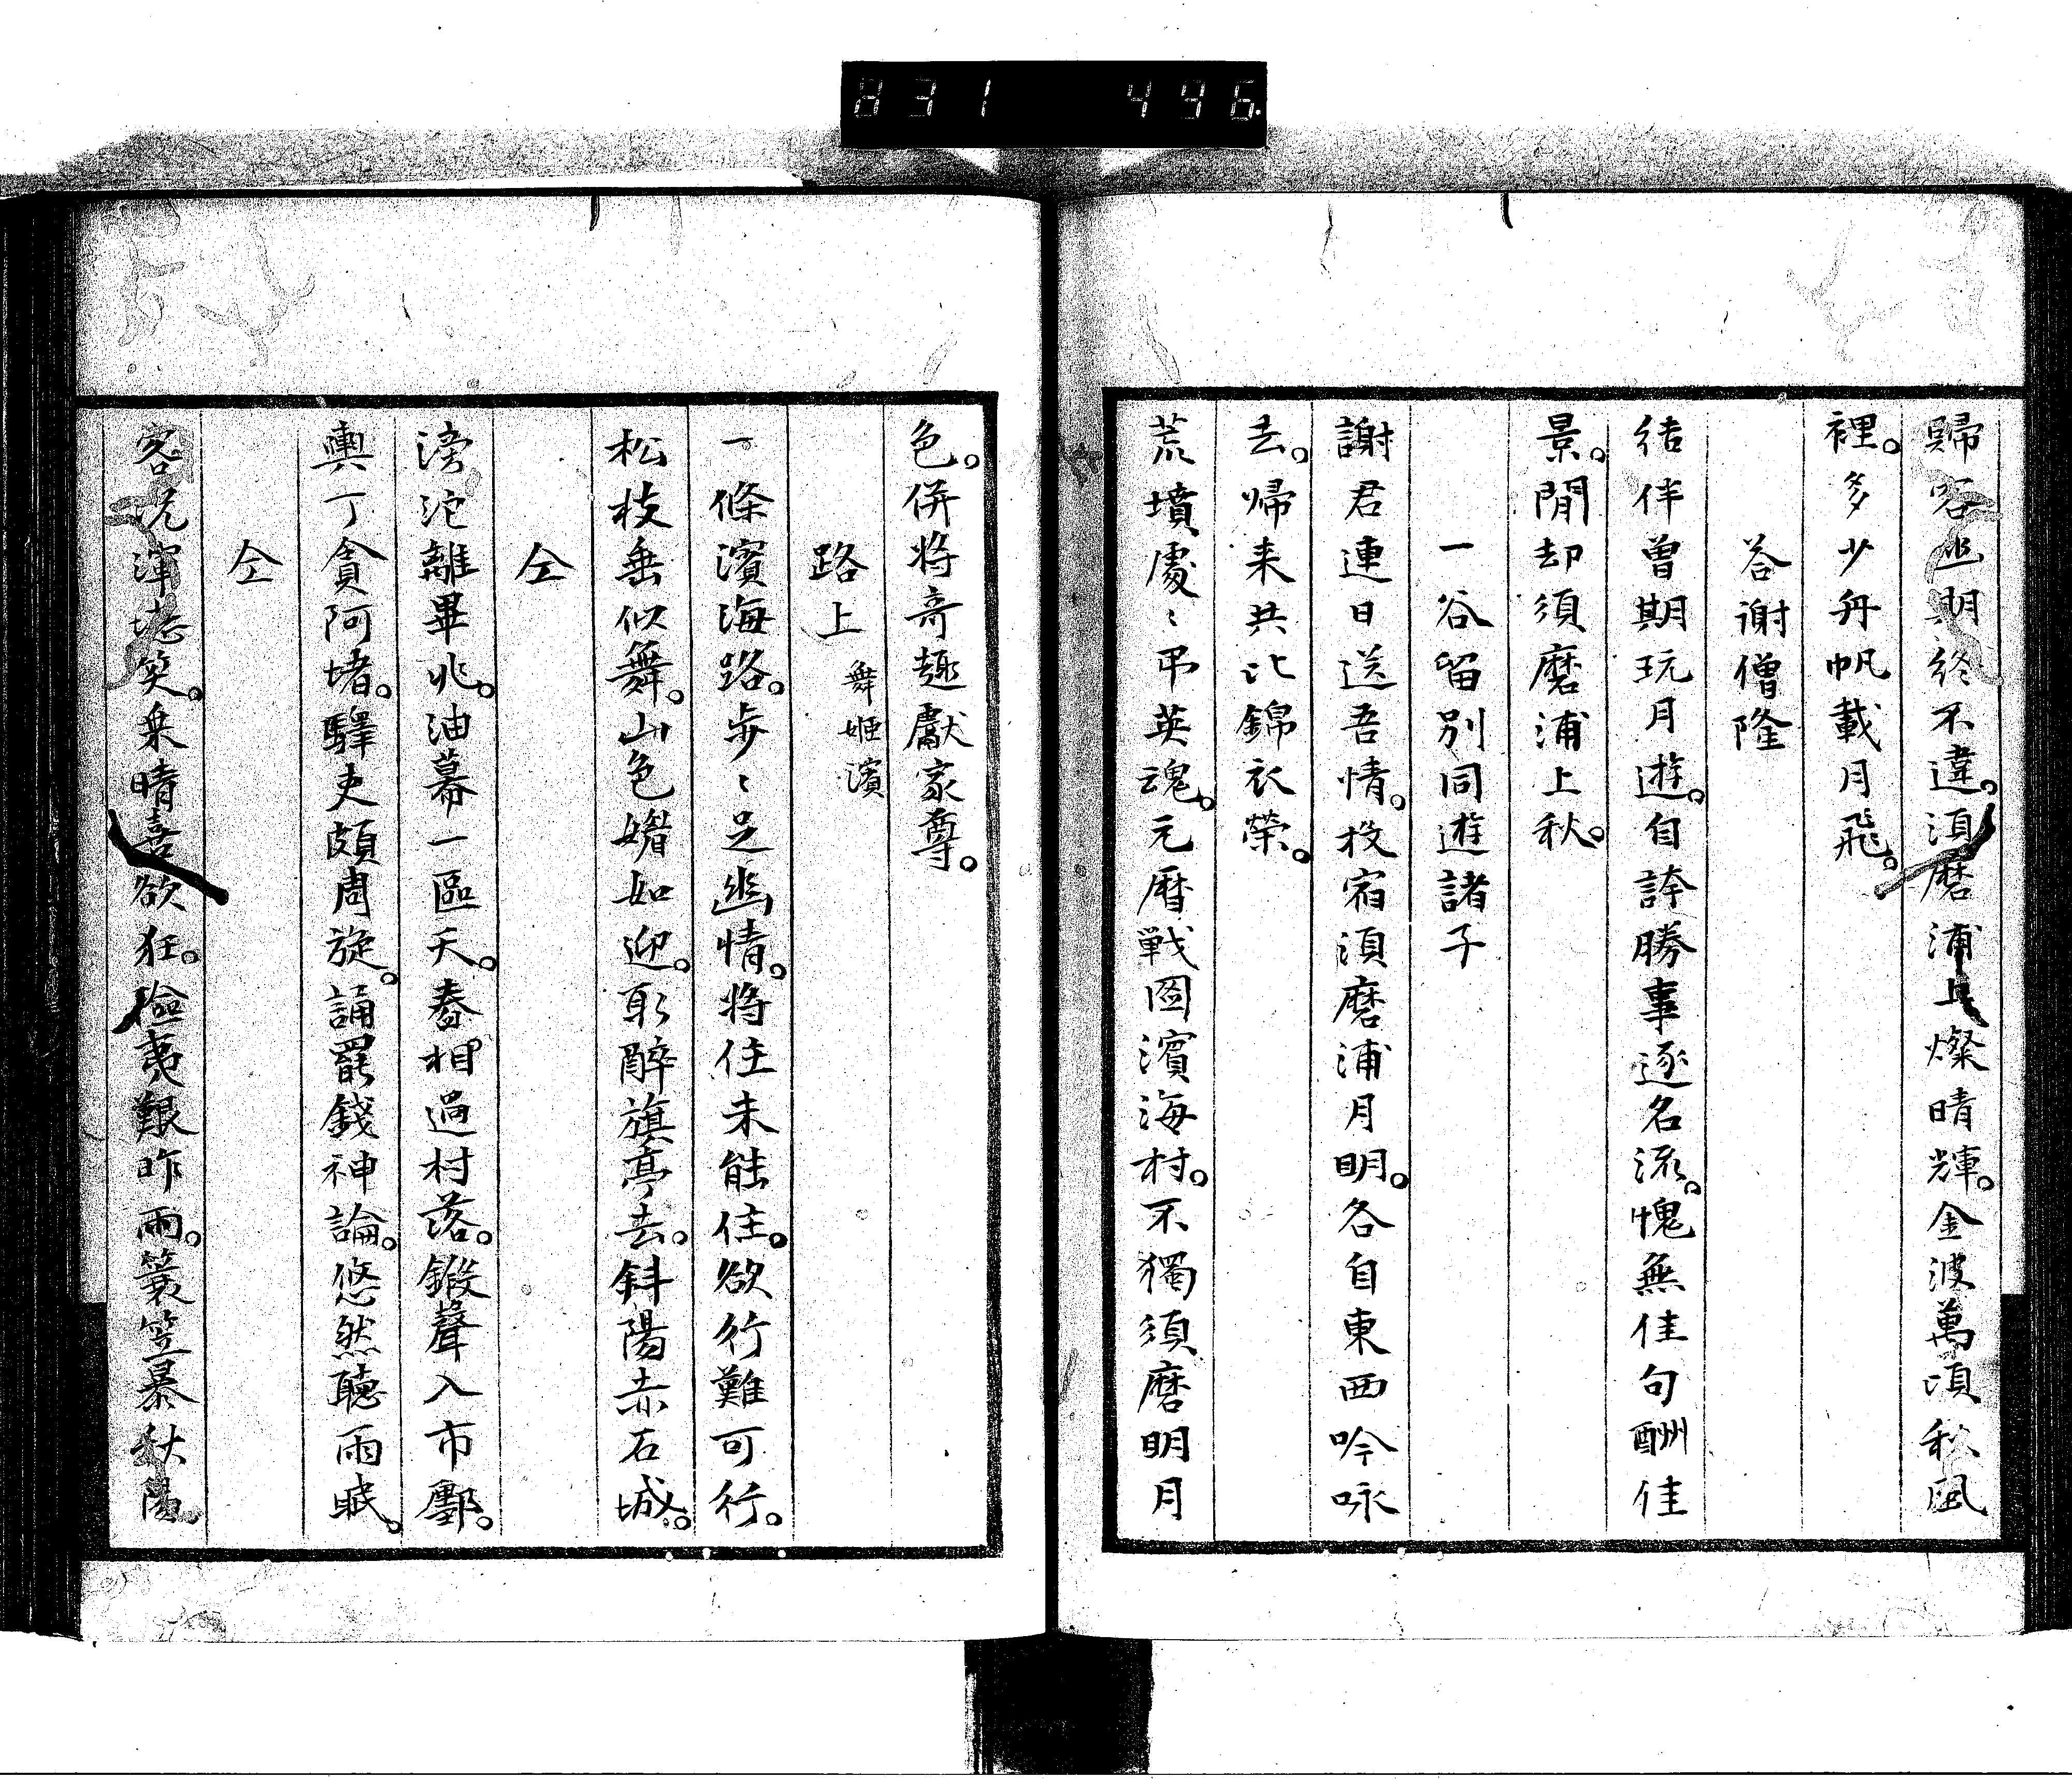 831 496
歸客幽期終不違。須磨浦上燦晴輝。金波萬頃秋風
裡。多少舟帆載月飛。
荅謝僧隆
結伴曾期玩月遊。自誇勝事逐名流。愧無佳句酬佳
景。閒却須磨浦上秋。
一谷留別同遊諸子
謝君連日送吾情。投宿須磨浦月明。各自東西吟咏
去。帰来共比錦衣榮。
荒墳處〻弔英魂。元暦戦圖濱海村。不獨須磨明月
色。併将奇趣獻家尊。
路上 舞姫濱
一條濱海路。歩〻足幽情。将住未能住。欲行難可行。
松枝垂似舞。山色媚如迎。取醉旗亭去。斜陽赤石城。
仝
滂沱離畢兆。油幕一區天。舂相過村落。鍛聲入市鄽。
輿丁貪阿堵。驛吏頗周旋。誦罷錢神論。悠然聽雨眠。
仝
客況渾堪笑。乗晴喜欲狂。險夷艱昨雨。簑笠暴秋陽。